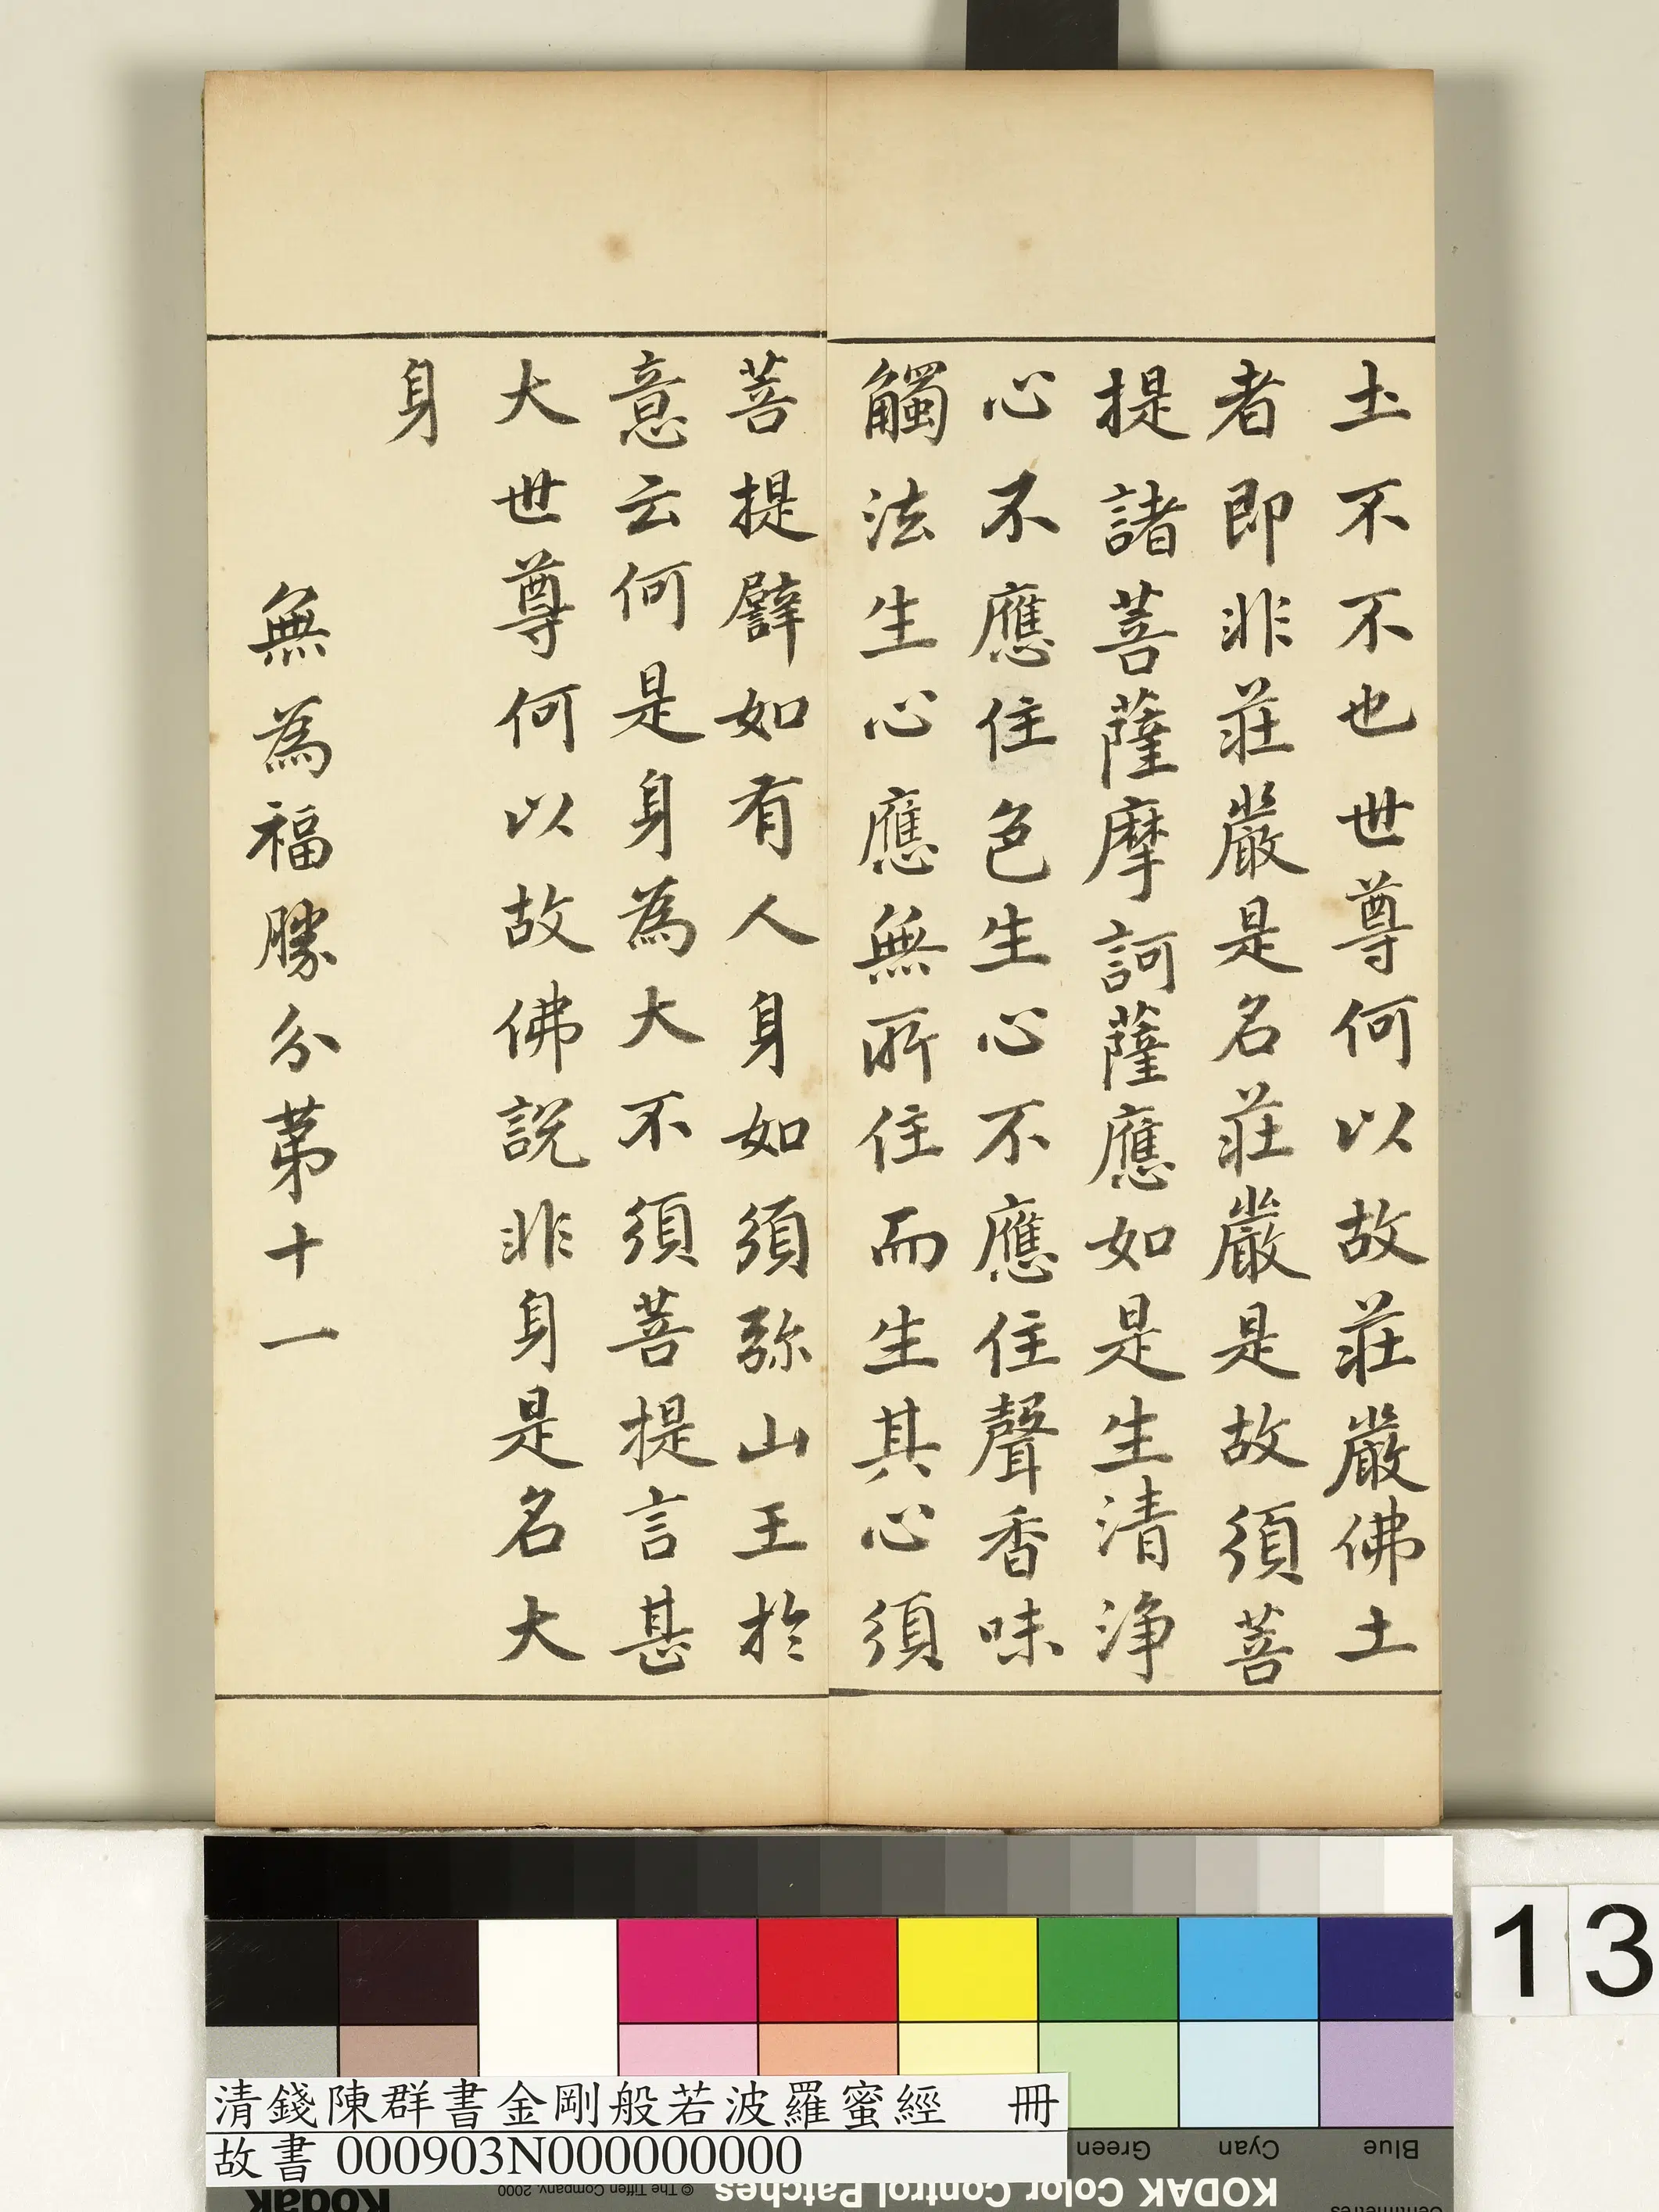 土不不也世尊何以故莊嚴佛土
者即非莊嚴是名莊嚴是故須菩
提諸菩薩摩訶薩應如是生清淨
心不應住色生心不應住聲香味
觸法生心應無所住而生其心須
菩提譬如有人身如須弥山王於
意云何是身為大不須菩提言甚
大世尊何以故佛說非身是名大
身
無為福勝分第十一
13
清錢陳群書金剛般若波羅蜜經 冊
故書 000903N000000000
Green
Cyan
Blue
KODAK Color Control Patches
© The Tiffen Company, 2000
Kodak
Centimetres